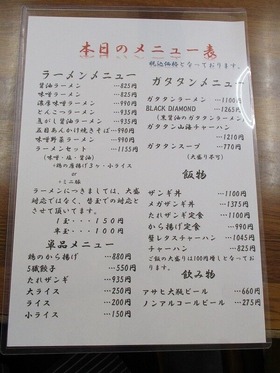 本日のメニュー表
税込価格となっております。
ラーメンメニュー
醤油ラーメン …825円
味噌ラーメン …825円
濃厚味噌ラーメン …990円
とんこつラーメン …935円
焦がし醤油ラーメン …935円
五目あんかけ焼きそば…990円
味噌野菜ラーメン …990円
ラーメンセット …1155円
(味噌・塩・醤油)
+鶏の唐揚げ3ヶ・小ライス
or
+ミニ豚
ラーメンにつきましては、大盛
対応ではなく、替玉での対応と
させて頂いてます。
1玉・・・150円
半玉・・・100円
単品メニュー
鶏のから揚げ …880円
5職餃子 …550円
たれザンギ …935円
大ライス …250円
ライス …200円
小ライス …150円
ガタタンメニュー
ガタタンラーメン …1100円
BLACK DIAMOND …1265円
(黒醤油のガタタンラーメン)
ガタタン山海チャーハン
…1210円
ガタタンスープ …770円
(大盛り不可)
飯物
ザンギ丼 …1100円
メガザンギ丼 …1375円
たれザンギ定食 …1100円
から揚げ定食 …990円
蟹レタスチャーハン …1045円
チャーハン …825円
ご飯の大盛りは100円増しとなっております。
飲み物
アサヒ大瓶ビール …660円
ノンアルコールビール …275円